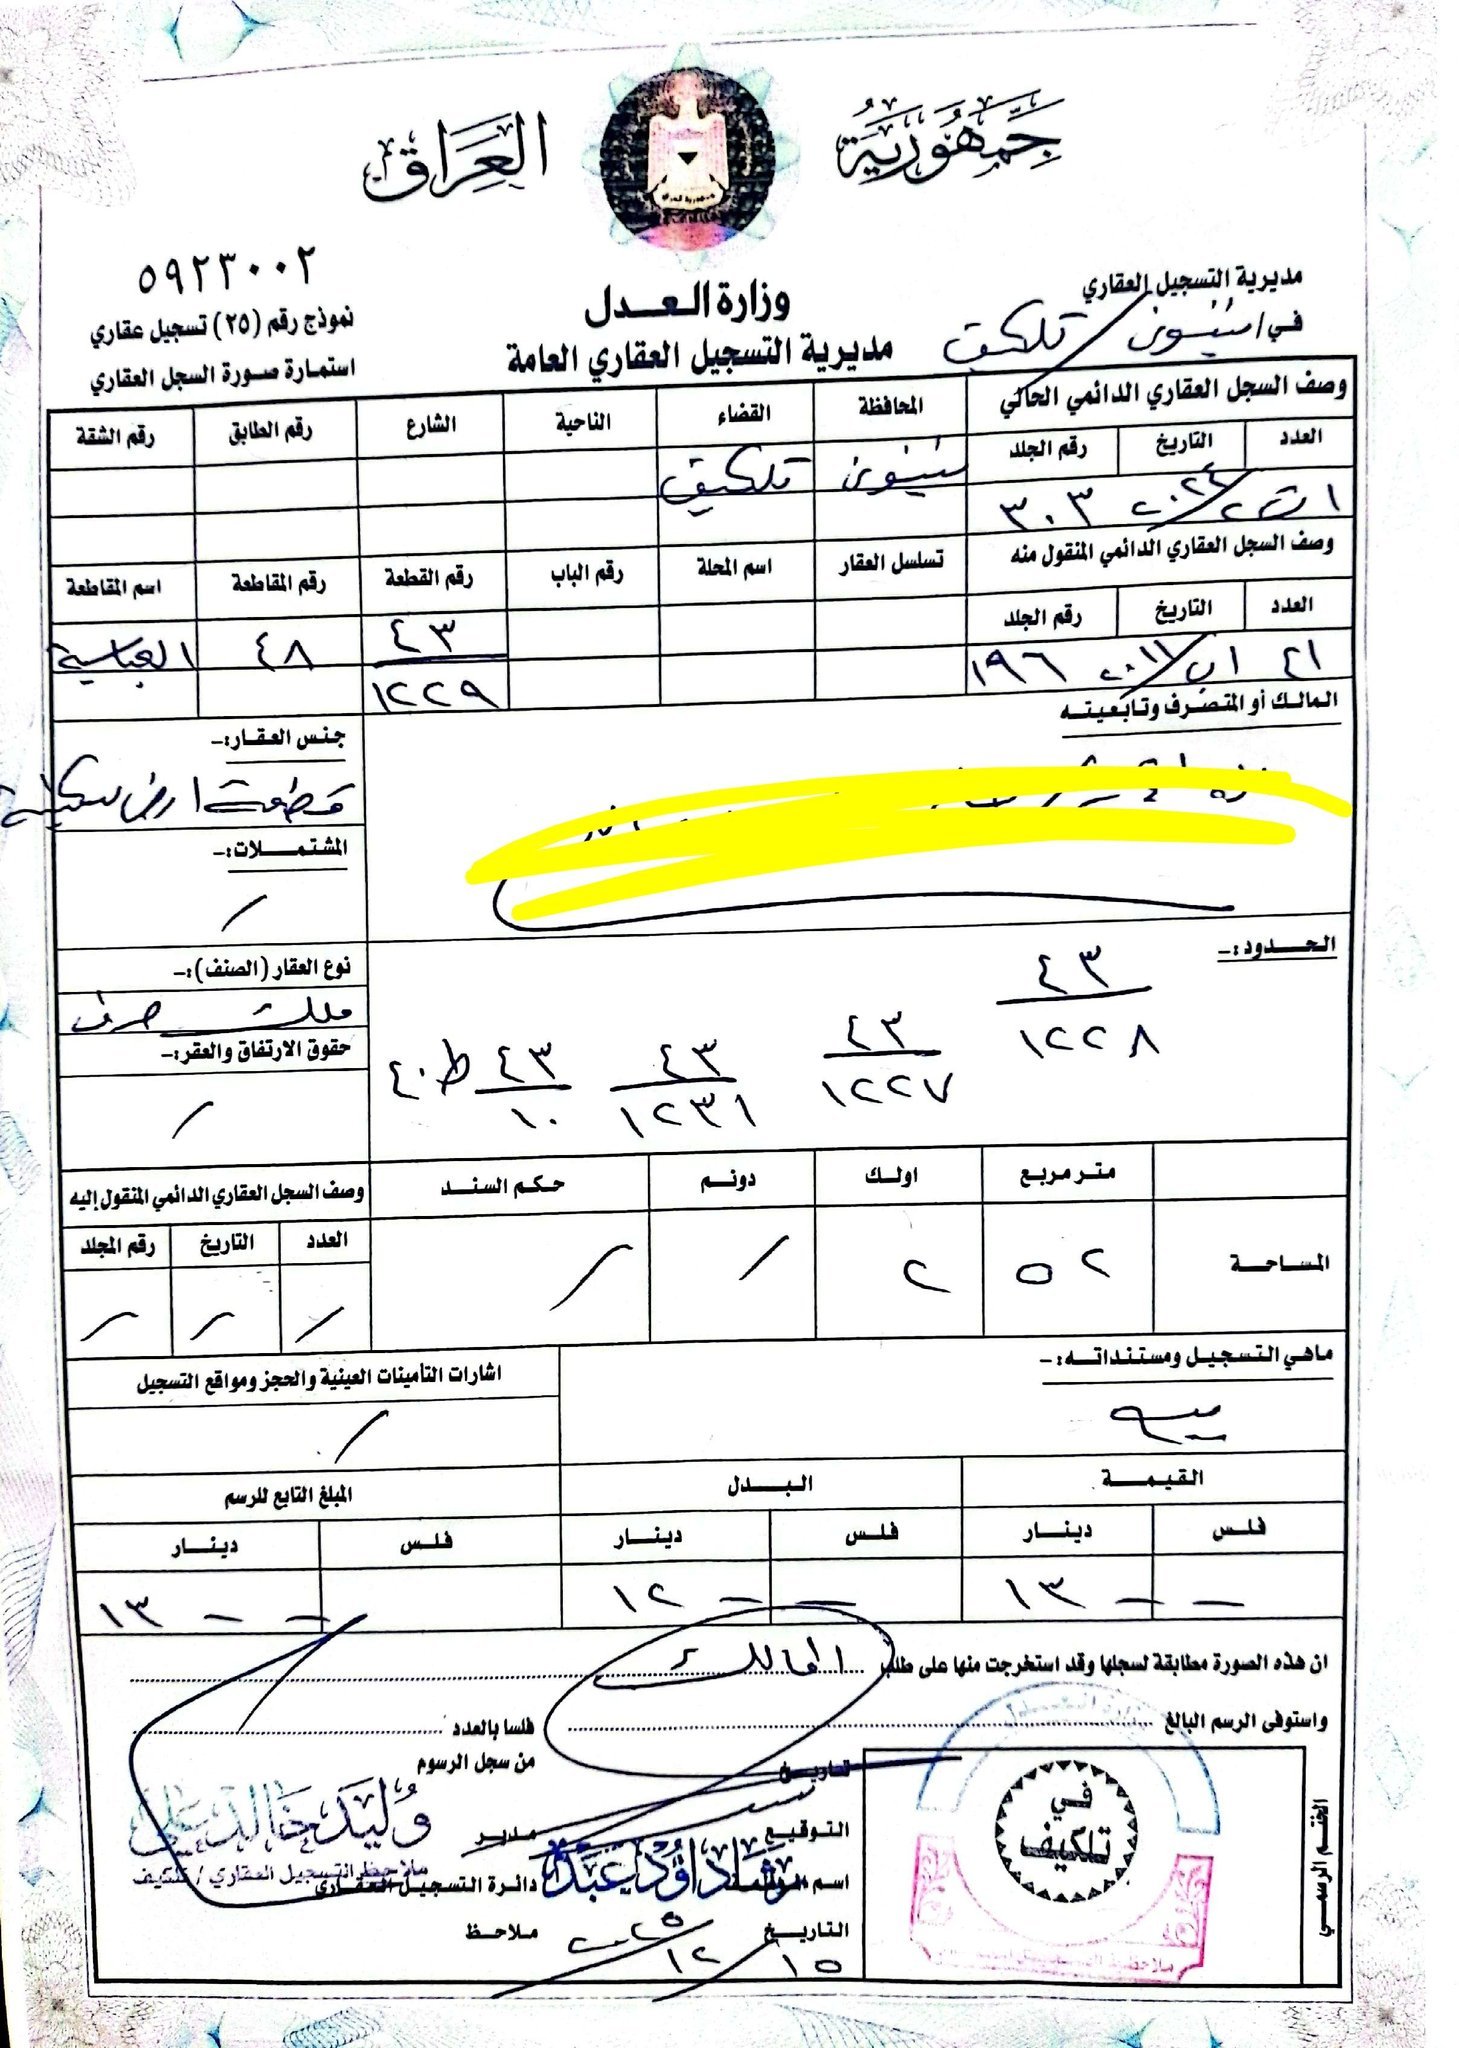 جمهورية العراق
٥٩٢٣٠٠٢
مديرية التسجيل العقاري
في/ نينوى / تلكيف
وزارة العدل
مديرية التسجيل العقاري العامة
نموذج رقم (٢٥) تسجيل عقاري
استمارة صورة السجل العقاري
وصف السجل العقاري الدائمي الحالي
المحافظة القضاء الناحية الشارع رقم الطابق رقم الشقة
العدد التاريخ رقم الجلد
نينوى تلكيف
١ ت٢/٢٠٢٤ ٣٠٣
وصف السجل العقاري الدائمي المنقول منه
تسلسل العقار اسم المحلة رقم الباب رقم القطعة رقم المقاطعة اسم المقاطعة
العدد التاريخ رقم الجلد
٤٣/١٢٢٩ ٤٨ العباسية
٢٤١ ٢٠١١ ١٩٦
المالك أو المتصرف وتابعيته
جنس العقار:-
قطعة ارض سكنية
المشتملات:-
/
الحدود:-
٤٣/١٢٢٨ ٤٣/١٢٢٧ ٤٣/١٢٣١ ٤٣/١٠ ط٤٠
نوع العقار (الصنف):-
ملك صرف
حقوق الارتفاق والعقر:-
/
متر مربع اولك دونم حكم السند
وصف السجل العقاري الدائمي المنقول إليه
العدد التاريخ رقم المجلد
المساحة ٥٢ ٢ / /
/ / /
ماهي التسجيل ومستنداته:-
اشارات التأمينات العينية والحجز ومواقع التسجيل
/
القيمة البدل المبلغ التابع للرسم
فلس دينار فلس دينار فلس دينار
- - ١٣ - - ١٢ - - ١٣
ان هذه الصورة مطابقة لسجلها وقد استخرجت منها على طلب المالك
واستوفى الرسم البالغ فلسا بالعدد
تاريخ من سجل الرسوم
التوقيع مدير
وليد خالد علي
ملاحظ التسجيل العقاري / تلكيف
اسم الموظف دائرة التسجيل العقاري
داؤد عبد
التاريخ ١٥/١٢/٢٠٢٥ ملاحظ
في تلكيف
الختم الرسمي